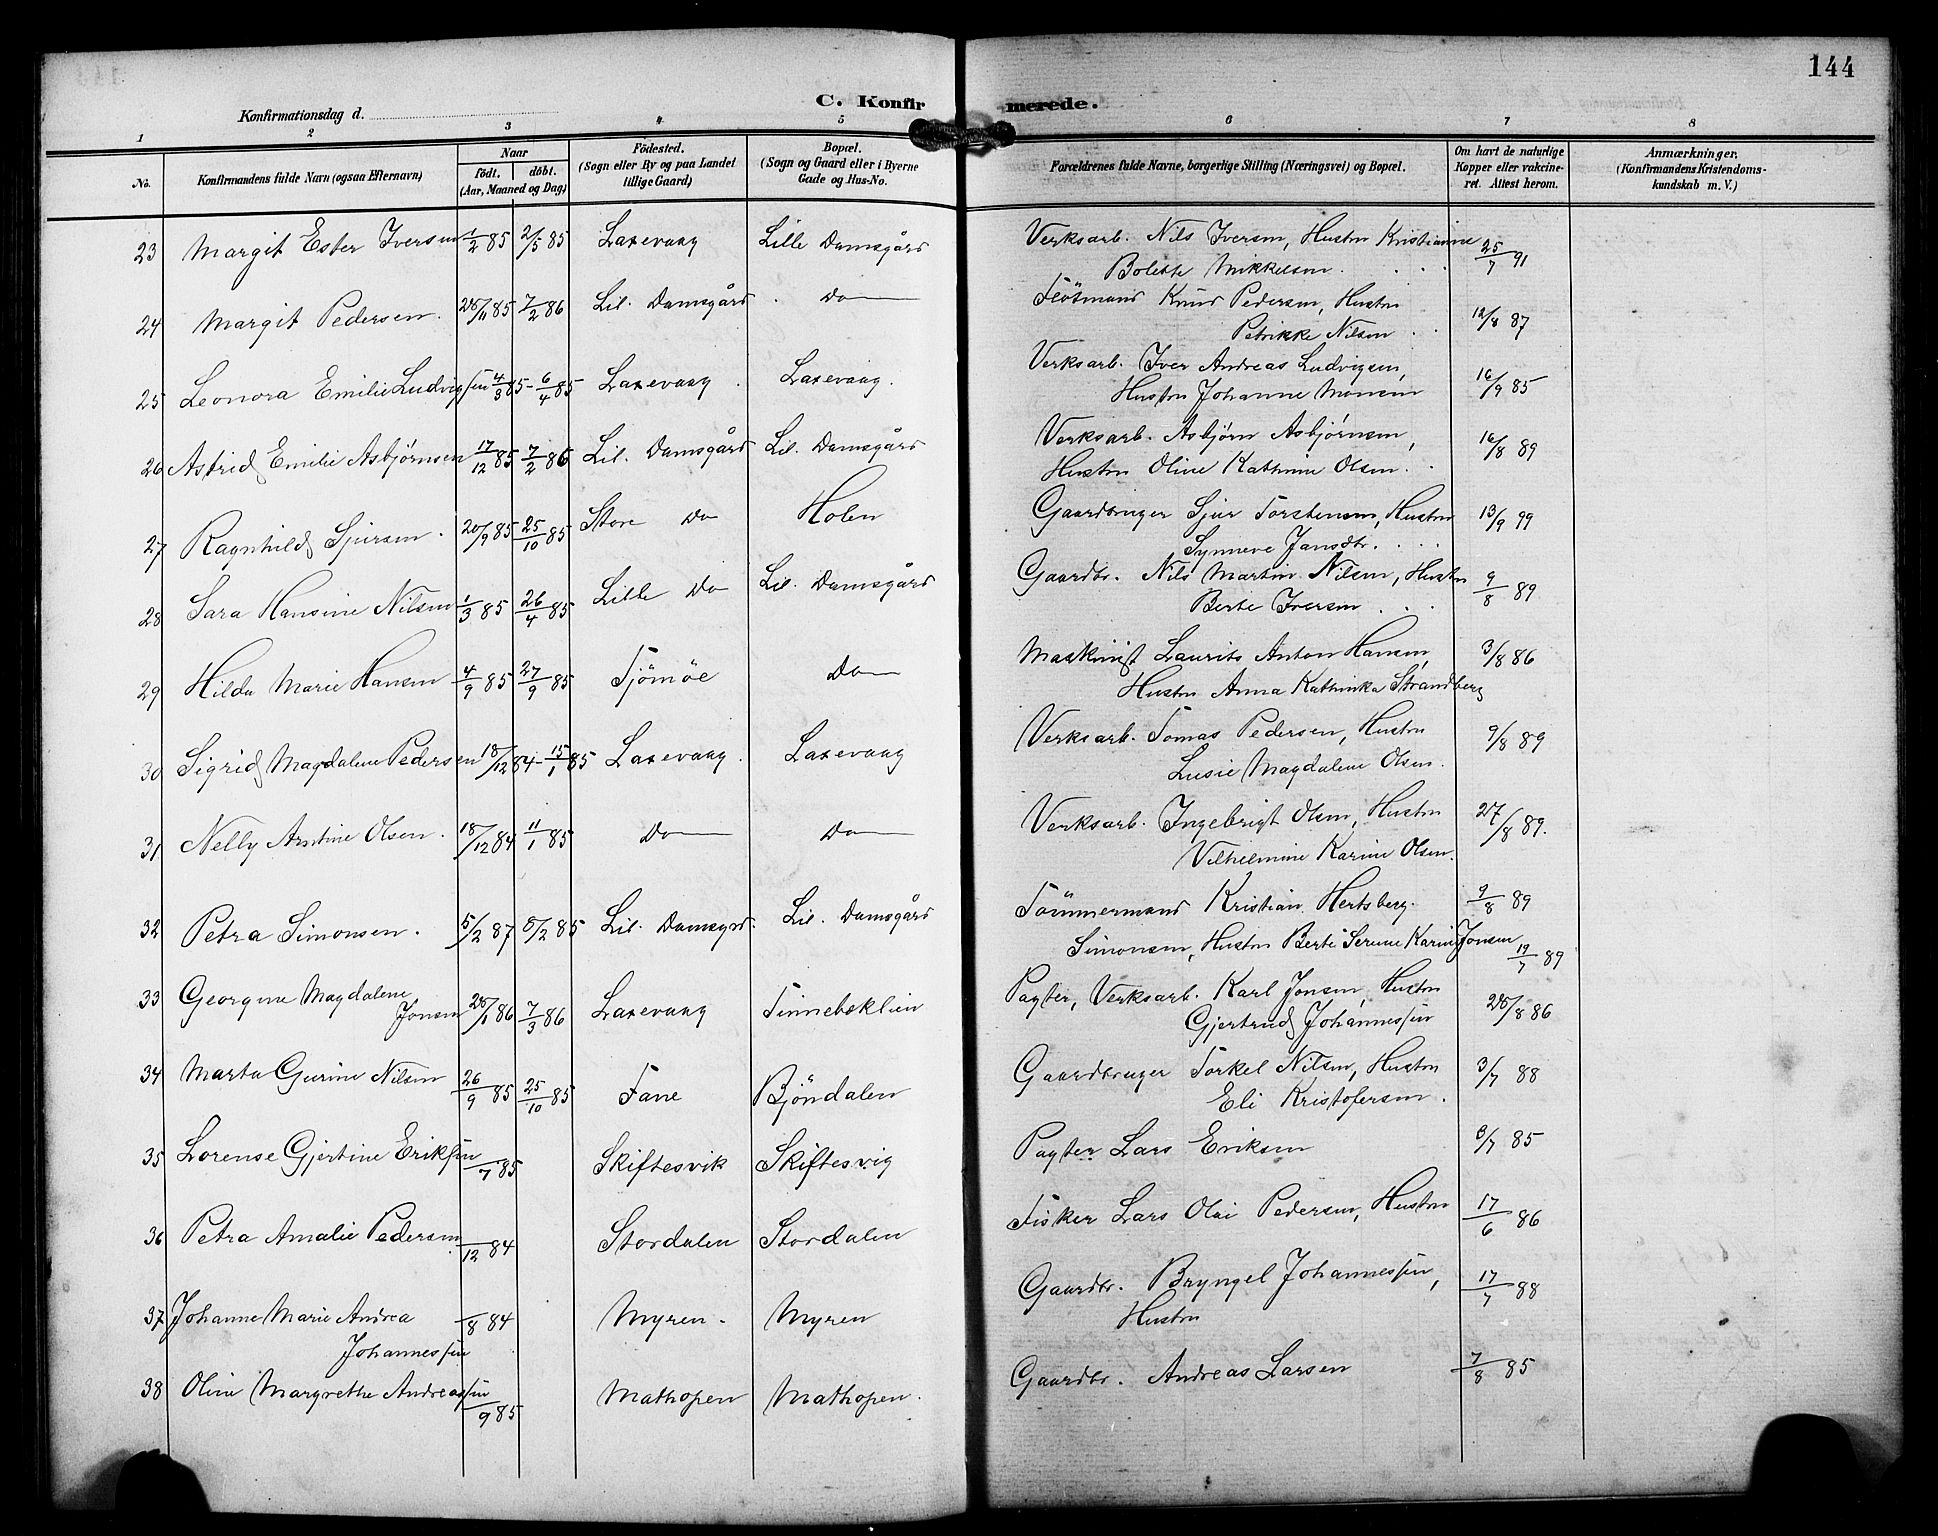 144
C. Konfirmerede.
Konfirmationsdag d.
1 2 3 4 5 6 7 8
No. Konfirmandens fulde Navn (ogsaa Efternavn) Naar født. døbt. (Aar, Maaned og Dag) Fødested. (Sogn eller By og paa Landet tillige Gaard) Bopæl. (Sogn og Gaard eller i Byerne Gade og Hus-No. Forældrenes fulde Navne, borgerlige Stilling (Næringsvei) og Bopæl. Om havt de naturlige Kopper eller vakcineret. Attest herom. Anmærkninger. (Konfirmandens Kristendomskundskab m. V.)
23 Margit Ester Iversen 1/2 85 2/5 85 Laxevaag Lille Damsgård Verksarb. Nils Iversen, Hustru Kristianne 25/7 91
Bolette Mikkelsen.
24 Margit Pedersen. 28/11 85 7/2 86 Lil. Damsgård. Do Fløtmand Knud Pedersen, Hustru 12/8 87
Petrikke Nilsen
25 Leonora Emilie Ludvigsen 4/3 85 - 6/4 85 Laxevaag. Laxevaag. Verksarb. Iver Andreas Ludvigsen, 16/9 85
Hustru Johanne Monsen
26 Astrid Emilie Asbjørnsen 17/12 85 7/2 86 Lil. Damsgård Lil. Damsgård Verksarb. Asbjørn Asbjørnsen, 16/8 89
Hustru Oline Kathrine Olsen.
27 Ragnhild Sjursen. 20/9 85 25/10 85 Store Do Holen Gaardbruger Sjur Torstensen, Hustru 13/9 99
Synneve Jansdtr.
28 Sara Hansine Nilsen 1/3 85 26/4 85 Lille Do Lil. Damsgård Gaardbr. Nils Martin Nilsen, Hustru 9/8 89
Berte Iversen
29 Hilda Marie Hansen 4/9 85 27/9 85 Tjömöe Do Maskinist Laurits Anton Hansen, 3/8 86
Hustru Anna Kathinka Strandberg
30 Sigrid Magdalene Pedersen 18/12 84 - 15/1 85 Laxevaag. Laxevaag Verksarb. Tomas Pedersen, Hustru 9/8 89
Lusie Magdalene Olsen.
31 Nelly Arntine Olsen. 18/12 84 11/1 85 Do Do Verksarb. Ingebrigt Olsen, Hustru 27/8 89.
Vilhelmine Karine Olsen.
32 Petra Simonsen. 5/2 87 5/2 85 Lil. Damsgrd. Lil. Damsgård Tömmermand Kristian Hertsberg. 9/8 89
Simonsen, Hustru Berte Serine Karine Jonsen 19/7 89
33 Georgine Magdalene Jonsen 28/1 86 7/3 86 Laxevaag Tinnebeklien Pagter, Verksarb. Karl Jonsen, Hustru 26/8 86
Gjertrud Johannessen
34 Marta Gurine Nilsen 26/9 85 25/10 85 Fane Bjöndalen Gaardbruger Torkel Nilsen, Hustru 3/7 88
Eli Kristofersen.
35 Lorense Gjertine Eriksen /7 85 Skiftesvik Skiftesvig Pagter Lars Eriksen 8/7 85
36 Petra Amalie Pedersen /12 84 Stordalen Stordalen Fisker Lars Olai Pedersen, Hustru 17/6 86
37 Johanne Marie Andrea /8 84 Myren. Myren Gaardbr. Bryngel Johannessen, 17/7 88
Johannessen Hustru
38 Oline Margrethe Andreassen /9 85 Mathopen Mathopen. Gaardbr. Andreas Larsen 7/8 85